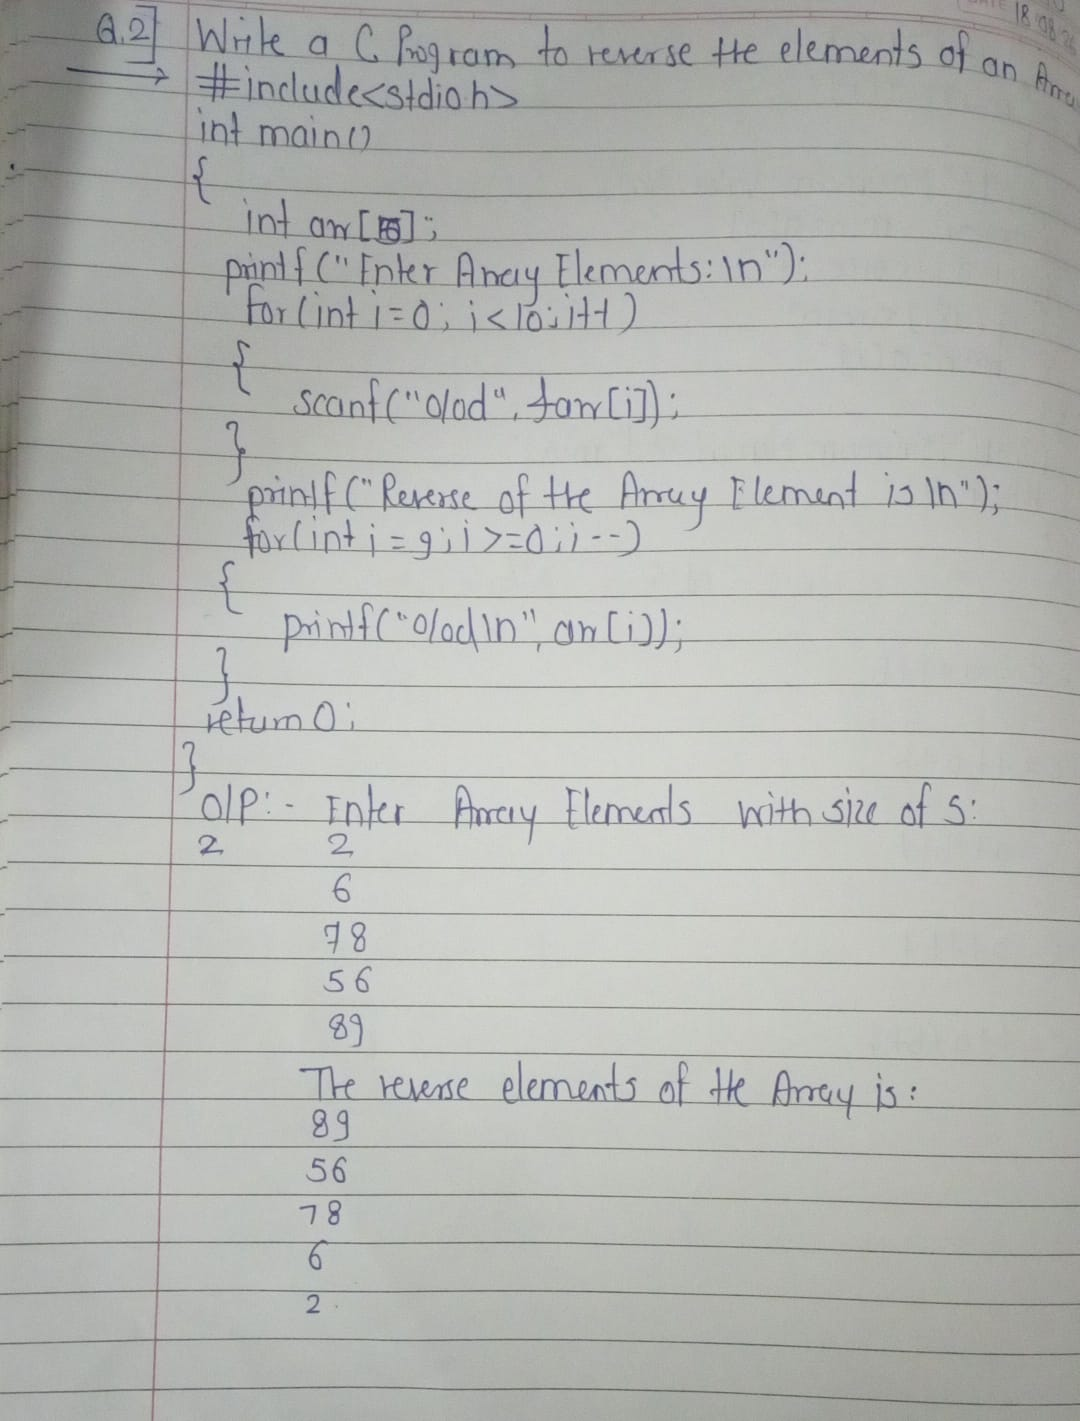 18.08.25
Q.2] Write a C Program to reverse the elements of an Array
#include<stdio.h>
int main()
{
int arr[];
printf("Enter Array Elements:\n");
for(int i=0; i<10; i++)
{
scanf("%d", &arr[i]);
}
printf("Reverse of the Array Element is \n");
for(int i=9; i>=0; i--)
{
printf("%d\n", arr[i]);
}
return 0;
}
O/P:- Enter Array Elements with size of 5:
2 2
6
78
56
89
The reverse elements of the Array is:
89
56
78
6
2